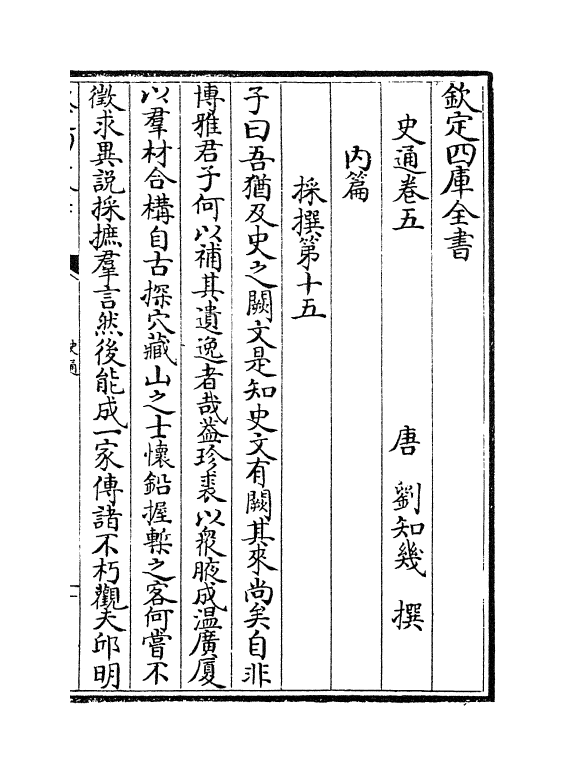 欽定四庫全書
史通卷五　唐　劉知幾　撰
內篇
採撰第十五
子曰吾猶及史之闕文是知史文有闕其來尚矣自非
博雅君子何以補其遺逸者哉葢珍裘以衆腋成温廣厦
以羣材合構自古探穴藏山之士懷鉛握槧之客何嘗不
徵求異説採摭羣言然後能成一家傳諸不朽觀夫邱明
史通